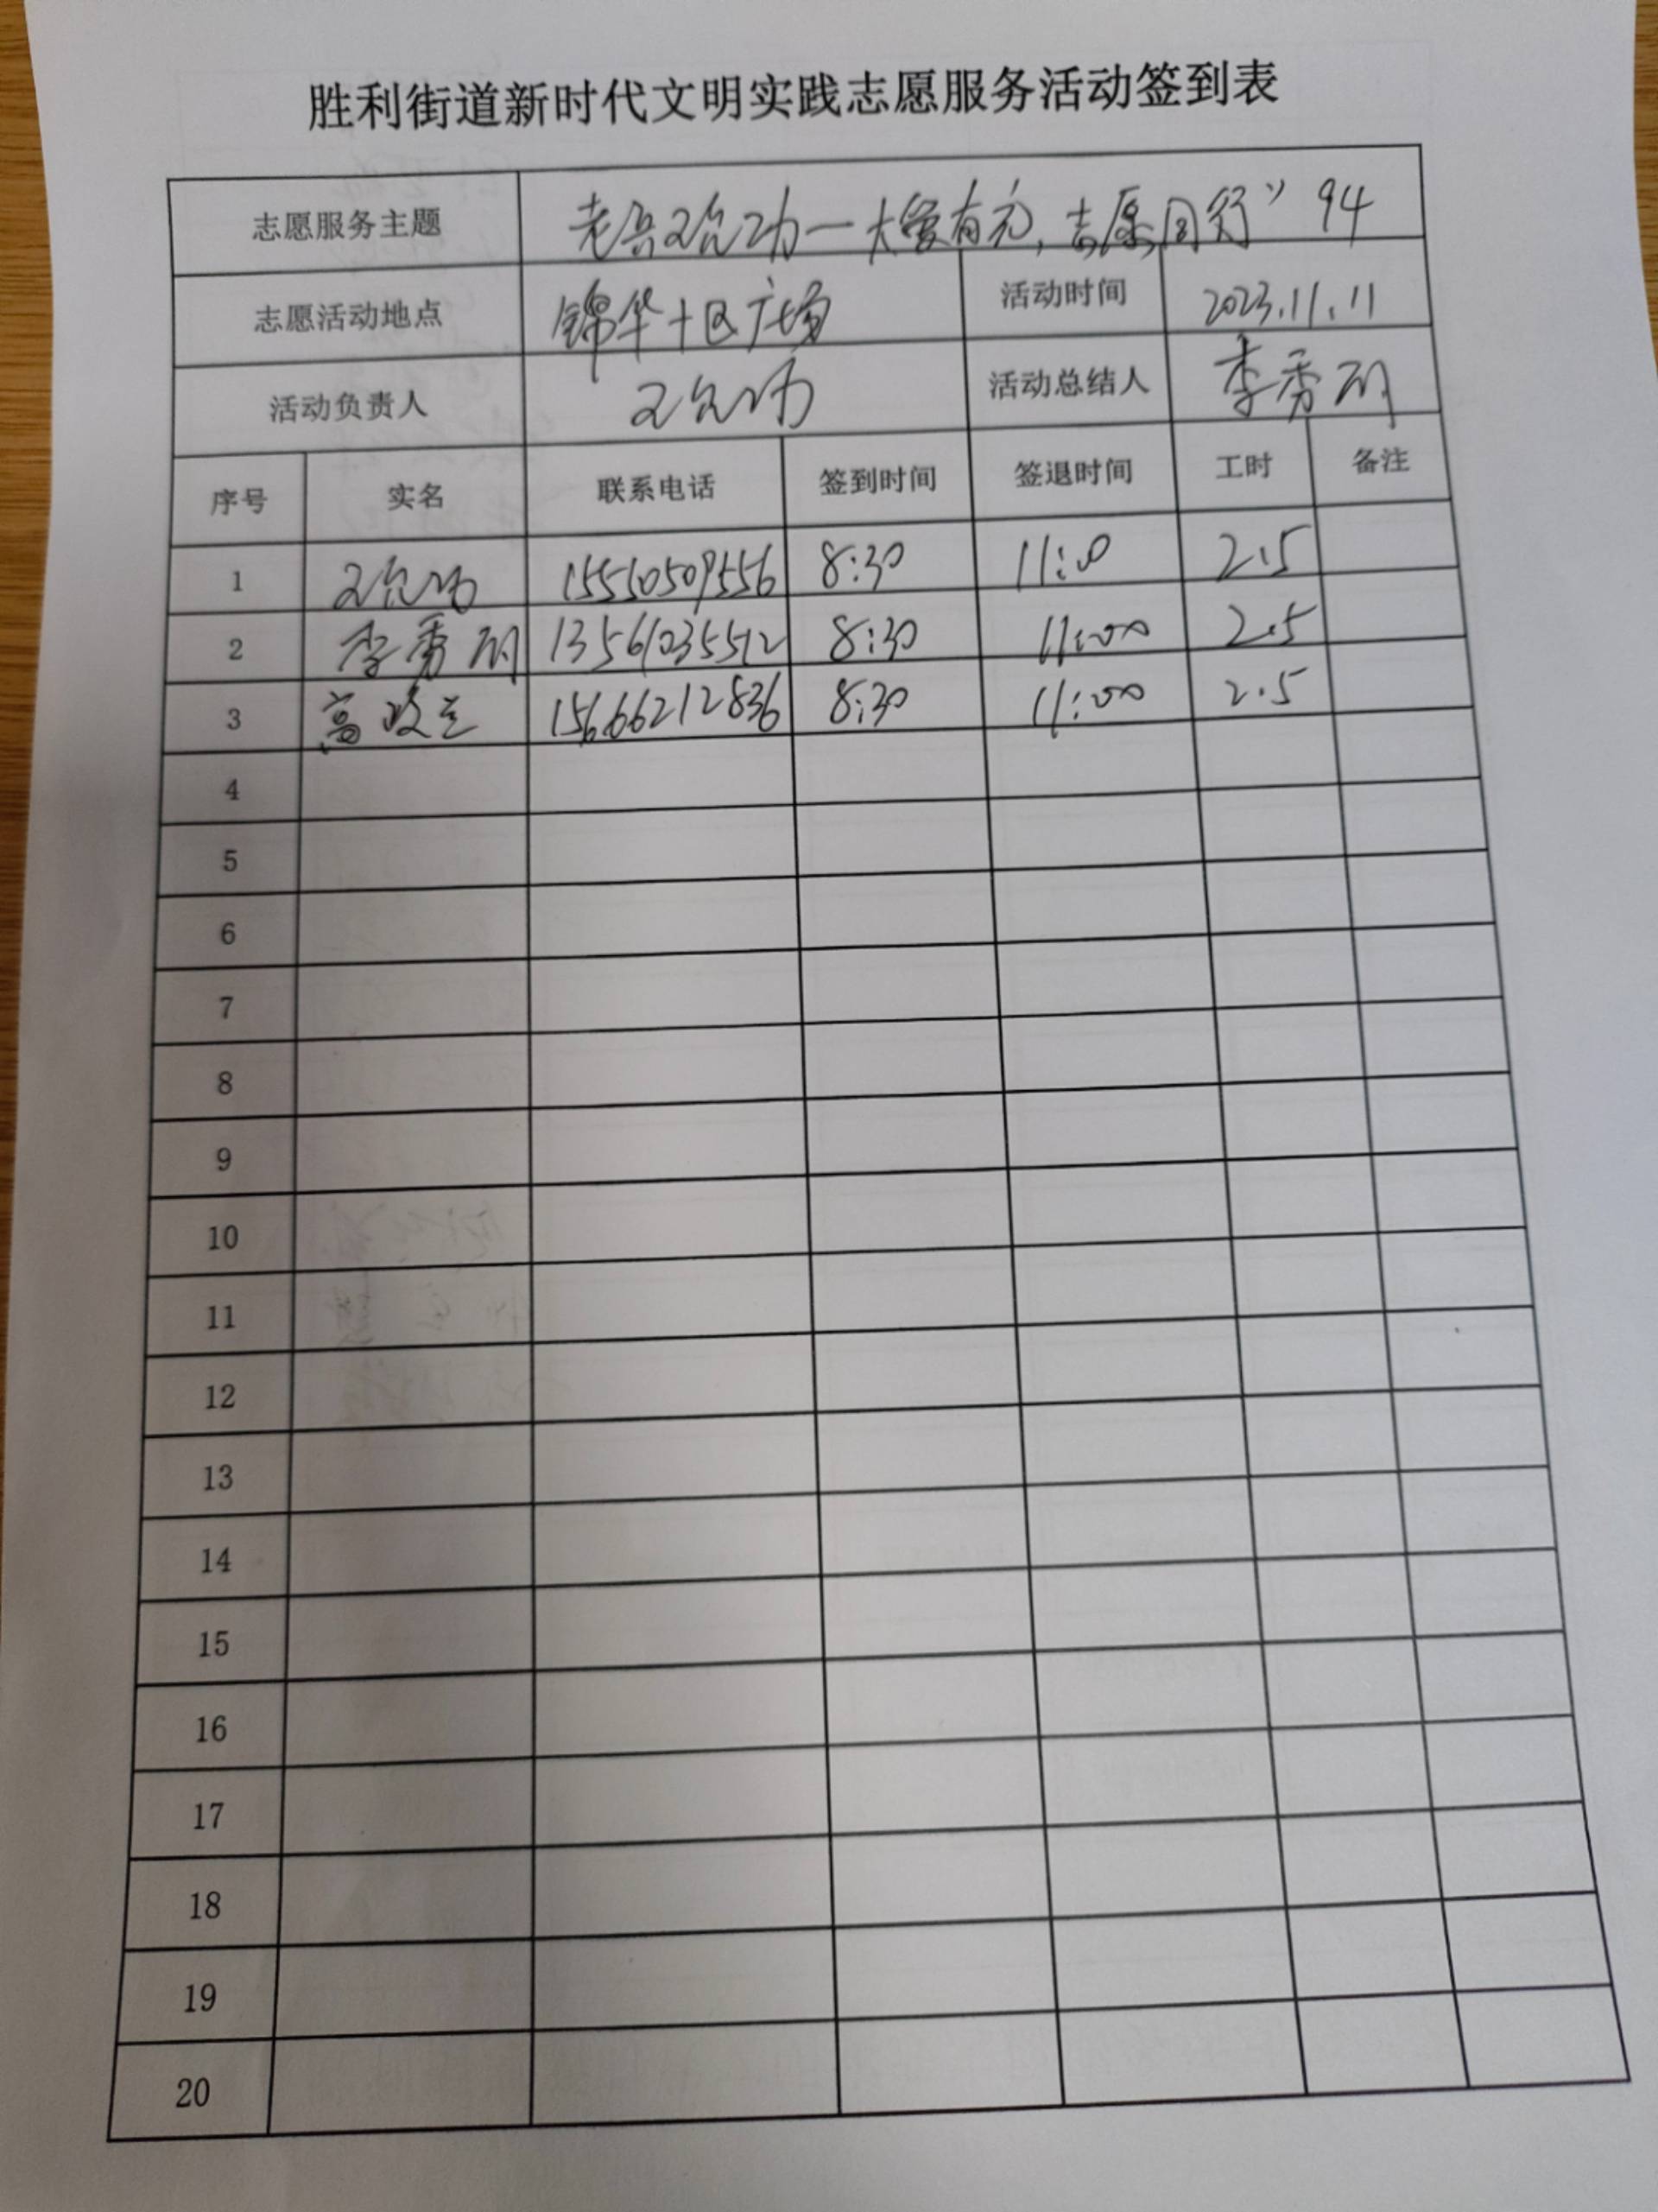 胜利街道新时代文明实践志愿服务活动签到表
志愿服务主题 老兵王允功一大爱有元,志愿同行” 94
志愿活动地点 锦华十区广场 活动时间 2023.11.11
活动负责人 王允功 活动总结人 李秀
序号 实名 联系电话 签到时间 签退时间 工时 备注
1 王允功 15550509556 8:30 11:0 2.5
2 李秀 13561035512 8:30 11:00 2.5
3 高 15666212836 8:30 11:00 2.5
4
5
6
7
8
9
10
11
12
13
14
15
16
17
18
19
20